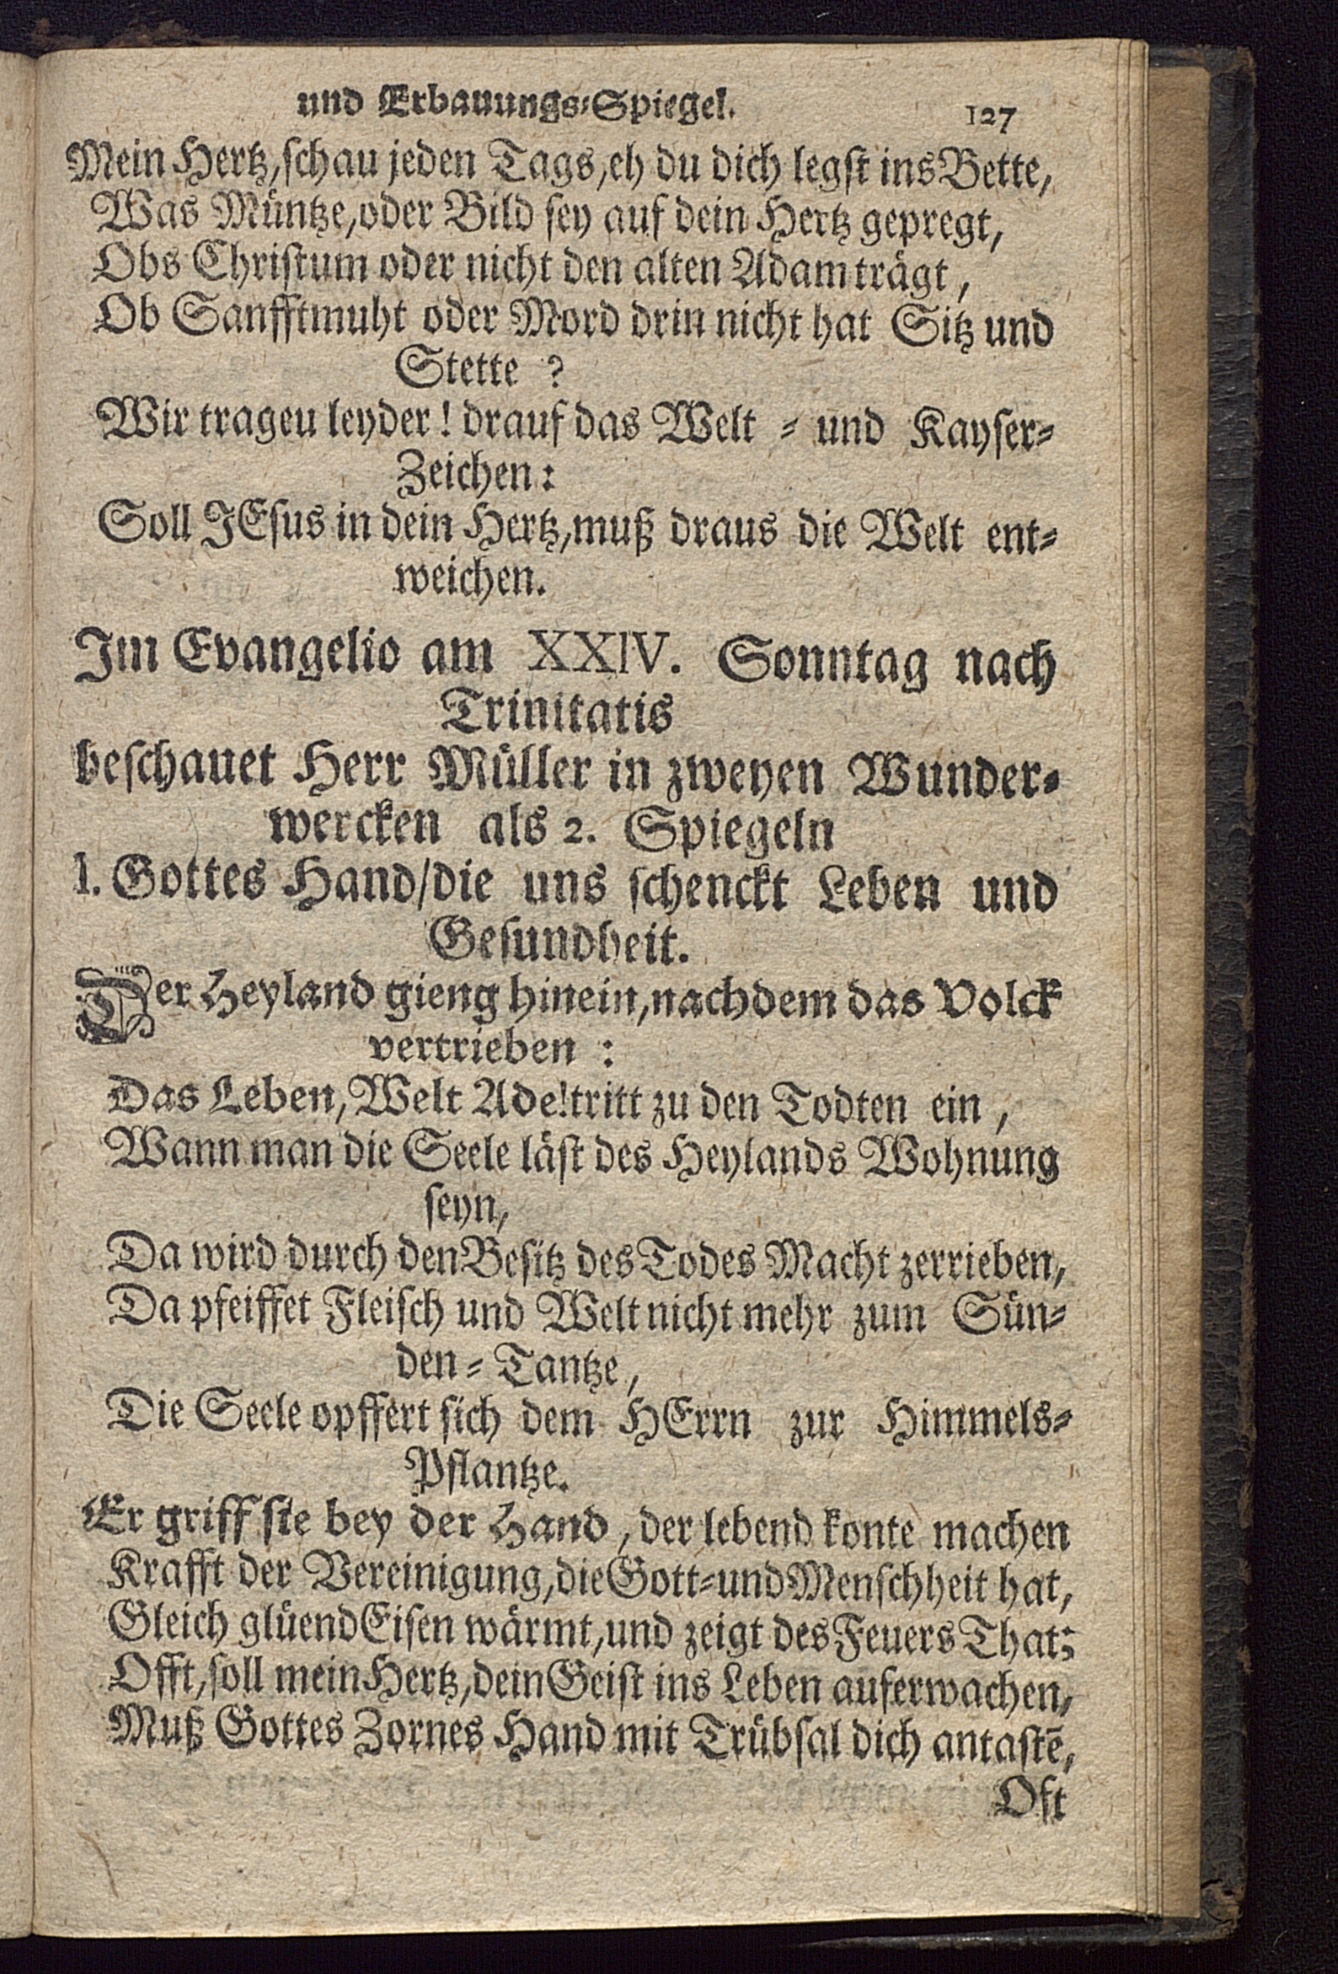 und Erbauungs-Spiegel. 127
Mein Hertz, schau jeden Tags, eh du dich legst ins Bette,
Was Müntze, oder Bild sey auf dein Hertz gepregt,
Obs Christum oder nicht den alten Adam trägt,
Ob Sanfftmuht oder Mord drin nicht hat Sitz und
Stette ?
Wir trageu leyder! drauf das Welt - und Kayser-
Zeichen:
Soll JEsus in dein Hertz, muß draus die Welt ent-
weichen.
Im Evangelio am XXIV. Sonntag nach
Trinitatis
beschauet Herr Müller in zweyen Wunder-
wercken als 2. Spiegeln
I. Gottes Hand/die uns schenckt Leben und
Gesundheit.
Der Heyland gieng hinein, nachdem das Volck
vertrieben :
Das Leben, Welt Ade! tritt zu den Todten ein,
Wann man die Seele läst des Heylands Wohnung
seyn,
Da wird durch den Besitz des Todes Macht zerrieben,
Da pfeiffet Fleisch und Welt nicht mehr zum Sün-
den-Tantze,
Die Seele opffert sich dem HErrn zur Himmels-
Pflantze.
Er griff sie bey der Hand, der lebend konte machen
Krafft der Vereinigung, die Gott-und Menschheit hat,
Gleich glüend Eisen wärmt, und zeigt des Feuers That;
Offt, soll mein Hertz, dein Geist ins Leben auferwachen,
Muß Gottes Zornes Hand mit Trübsal dich antastē,
Oft